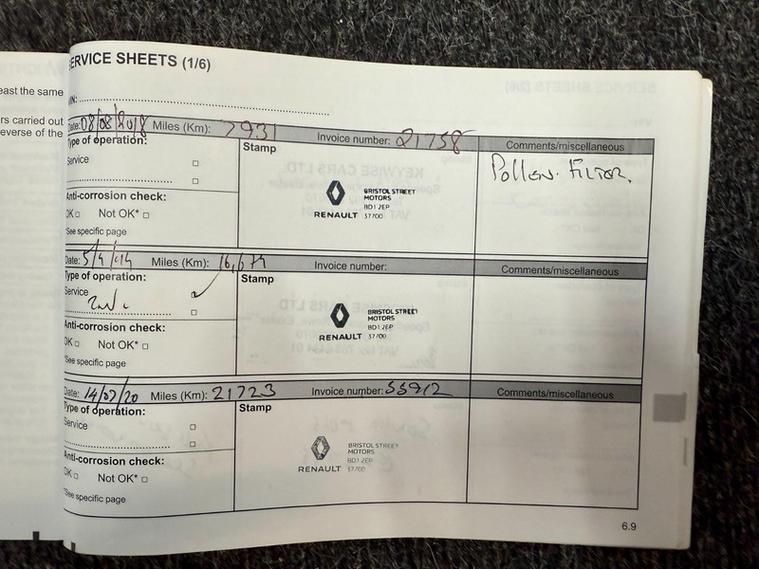 ERVICE SHEETS (1/6)
east the same
rs carried out
everse of the
IN:
Date: 08/08/2018 Miles (Km): 7931 Invoice number: 21758 Comments/miscellaneous
Type of operation:
Service
Stamp
Pollen. Filter.
RENAULT
BRISTOL STREET
MOTORS
BD1 2EP
37700
Anti-corrosion check:
OK Not OK*
*See specific page
Date: 5/9/19 Miles (Km): 16,679 Invoice number: Comments/miscellaneous
Type of operation:
Service ✓
Stamp
RENAULT
BRISTOL STREET
MOTORS
BD1 2EP
37700
Anti-corrosion check:
OK Not OK*
*See specific page
Date: 14/07/20 Miles (Km): 21723 Invoice number: 55912 Comments/miscellaneous
Type of operation:
Service
Stamp
RENAULT
BRISTOL STREET
MOTORS
BD1 2EP
37700
Anti-corrosion check:
OK Not OK*
*See specific page
6.9